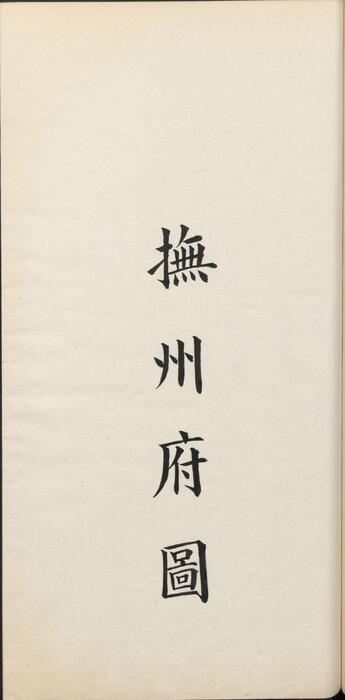 撫州府圖